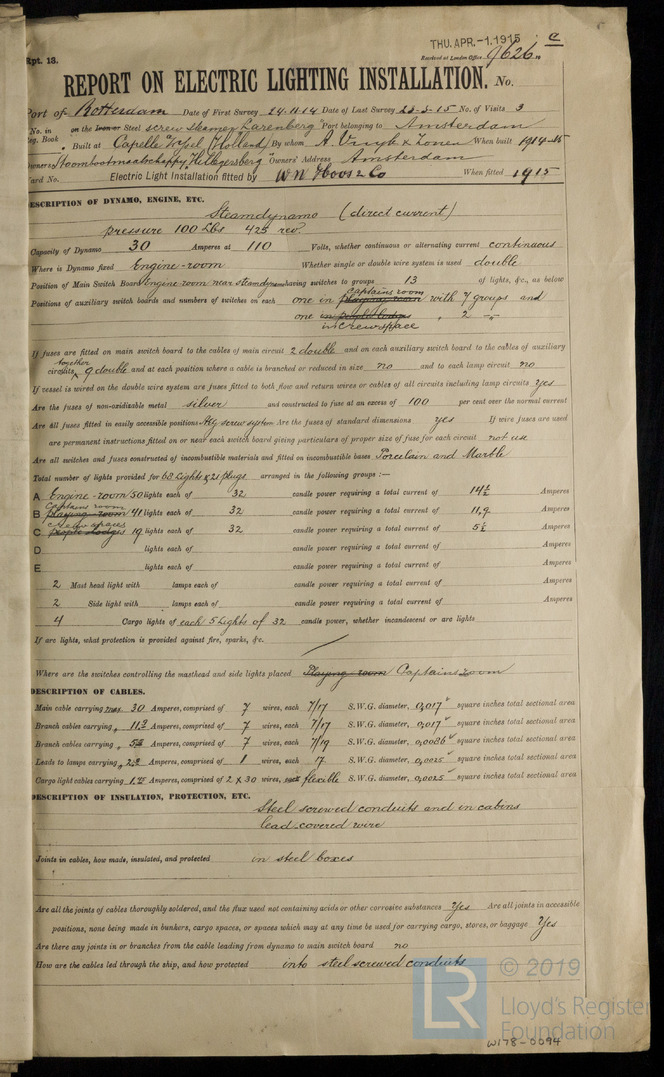 THU. APR. -1. 1915
Rpt. 13.
Received at London Office
9626
REPORT ON ELECTRIC LIGHTING INSTALLATION. No.
Port of Rotterdam Date of First Survey 24-11-14 Date of Last Survey 23-3-15 No. of Visits 3
No. in Reg. Book on the Iron or Steel screw steamer "Zarenberg" Port belonging to Amsterdam
Built at Capelle a/Yssel (Holland) By whom A. Vuyk & Zonen When built 1914-15
Owners Stoombootmaatschappy "Hillegersberg" Owners' Address Amsterdam
Card No. Electric Light Installation fitted by W N Hoos & Co When fitted 1915
DESCRIPTION OF DYNAMO, ENGINE, ETC.
Steamdynamo (direct current)
pressure 100 Lbs 425 rev.
Capacity of Dynamo 30 Amperes at 110 Volts, whether continuous or alternating current continuous
Where is Dynamo fixed Engine-room Whether single or double wire system is used double
Position of Main Switch Board Engine room near steamdynamo having switches to groups 13 of lights, &c., as below
Positions of auxiliary switch boards and numbers of switches on each one in playing room Captains room with 7 groups and
one in peoples lodges " 2 -"-
in crewspace
If fuses are fitted on main switch board to the cables of main circuit 2 double and on each auxiliary switch board to the cables of auxiliary
circuits together 9 double and at each position where a cable is branched or reduced in size no and to each lamp circuit no
If vessel is wired on the double wire system are fuses fitted to both flow and return wires or cables of all circuits including lamp circuits yes
Are the fuses of non-oxidizable metal silver and constructed to fuse at an excess of 100 per cent over the normal current
Are all fuses fitted in easily accessible positions by screw system Are the fuses of standard dimensions yes If wire fuses are used
are permanent instructions fitted on or near each switch board giving particulars of proper size of fuse for each circuit not use
Are all switches and fuses constructed of incombustible materials and fitted on incombustible bases Porcelain and Marble
Total number of lights provided for 60 Lights & 21 plugs arranged in the following groups :—
A Engine-room 50 lights each of 32 candle power requiring a total current of 14½ Amperes
B Captains room playing-room 41 lights each of 32 candle power requiring a total current of 11,9 Amperes
C crew spaces peoples lodges 19 lights each of 32 candle power requiring a total current of 5½ Amperes
D lights each of candle power requiring a total current of Amperes
E lights each of candle power requiring a total current of Amperes
2 Mast head light with lamps each of candle power requiring a total current of Amperes
2 Side light with lamps each of candle power requiring a total current of Amperes
4 Cargo lights of each 5 Lights of 32 candle power, whether incandescent or arc lights
If arc lights, what protection is provided against fire, sparks, &c.
Where are the switches controlling the masthead and side lights placed Playing-room Captains room
DESCRIPTION OF CABLES.
Main cable carrying max 30 Amperes, comprised of 7 wires, each 7/17 S.W.G. diameter, 0,017 square inches total sectional area
Branch cables carrying Amperes, comprised of 7 wires, each 7/17 S.W.G. diameter, 0,017 square inches total sectional area
Branch cables carrying Amperes, comprised of 7 wires, each 7/19 S.W.G. diameter, 0,0086 square inches total sectional area
Leads to lamps carrying Amperes, comprised of 1 wires, each 17 S.W.G. diameter, 0,0025 square inches total sectional area
Cargo light cables carrying Amperes, comprised of 2 x 30 wires, each flexible S.W.G. diameter, 0,0025 square inches total sectional area
DESCRIPTION OF INSULATION, PROTECTION, ETC.
Steel screwed conduits and in cabins
lead covered wire
Joints in cables, how made, insulated, and protected in steel boxes
Are all the joints of cables thoroughly soldered, and the flux used not containing acids or other corrosive substances Yes Are all joints in accessible
positions, none being made in bunkers, cargo spaces, or spaces which may at any time be used for carrying cargo, stores, or baggage Yes
Are there any joints in or branches from the cable leading from dynamo to main switch board no
How are the cables led through the ship, and how protected into steel screwed conduits
LR
© 2019
Lloyd's Register
Foundation
W178-0094